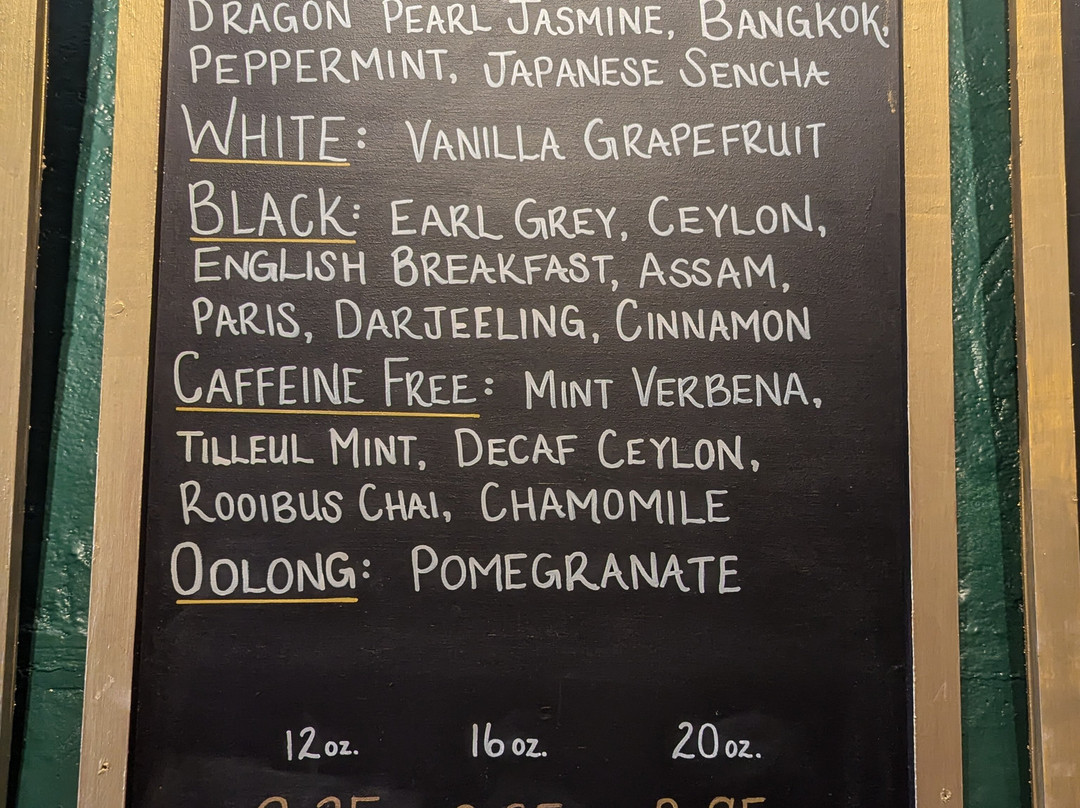 DRAGON PEARL JASMINE, BANGKOK,
PEPPERMINT, JAPANESE SENCHA
WHITE: VANILLA GRAPEFRUIT
BLACK: EARL GREY, CEYLON,
ENGLISH BREAKFAST, ASSAM,
PARIS, DARJEELING, CINNAMON
CAFFEINE FREE: MINT VERBENA,
TILLEUL MINT, DECAF CEYLON,
ROOIBUS CHAI, CHAMOMILE
OOLONG: POMEGRANATE
12 oz. 16 oz. 20 oz.